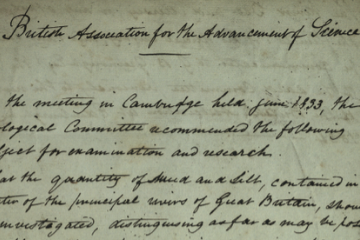 British Association for the Advancement of Science
the meeting in Cambridge held June 1833, the
ological Committee recommended the following
ject for examination and research.
at the quantity of Mud and Silt, contained in
ter of the principal rivers of Great Britain, shou
investigated, distinguising as far as may be pos